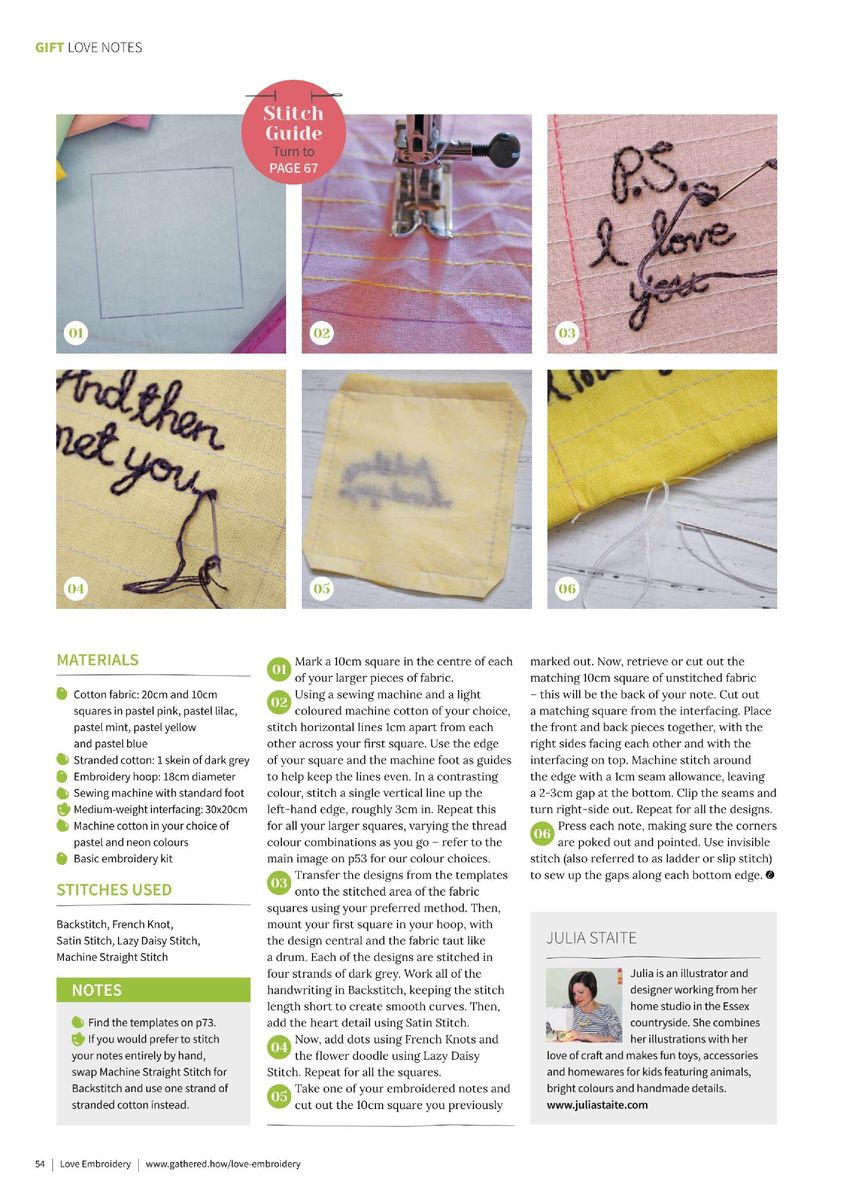 GIFT LOVE NOTES
Stitch
Guide
Turn to
PAGE 67
01
02
P.S.
I love
you
03
And then
met you
04
05
06
MATERIALS
Cotton fabric: 20cm and 10cm
squares in pastel pink, pastel lilac,
pastel mint, pastel yellow
and pastel blue
Stranded cotton: 1 skein of dark grey
Embroidery hoop: 18cm diameter
Sewing machine with standard foot
Medium-weight interfacing: 30x20cm
Machine cotton in your choice of
pastel and neon colours
Basic embroidery kit
STITCHES USED
Backstitch, French Knot,
Satin Stitch, Lazy Daisy Stitch,
Machine Straight Stitch
NOTES
Find the templates on p73.
If you would prefer to stitch
your notes entirely by hand,
swap Machine Straight Stitch for
Backstitch and use one strand of
stranded cotton instead.
01 Mark a 10cm square in the centre of each
of your larger pieces of fabric.
02 Using a sewing machine and a light
coloured machine cotton of your choice,
stitch horizontal lines 1cm apart from each
other across your first square. Use the edge
of your square and the machine foot as guides
to help keep the lines even. In a contrasting
colour, stitch a single vertical line up the
left-hand edge, roughly 3cm in. Repeat this
for all your larger squares, varying the thread
colour combinations as you go – refer to the
main image on p53 for our colour choices.
03 Transfer the designs from the templates
onto the stitched area of the fabric
squares using your preferred method. Then,
mount your first square in your hoop, with
the design central and the fabric taut like
a drum. Each of the designs are stitched in
four strands of dark grey. Work all of the
handwriting in Backstitch, keeping the stitch
length short to create smooth curves. Then,
add the heart detail using Satin Stitch.
04 Now, add dots using French Knots and
the flower doodle using Lazy Daisy
Stitch. Repeat for all the squares.
05 Take one of your embroidered notes and
cut out the 10cm square you previously
marked out. Now, retrieve or cut out the
matching 10cm square of unstitched fabric
– this will be the back of your note. Cut out
a matching square from the interfacing. Place
the front and back pieces together, with the
right sides facing each other and with the
interfacing on top. Machine stitch around
the edge with a 1cm seam allowance, leaving
a 2-3cm gap at the bottom. Clip the seams and
turn right-side out. Repeat for all the designs.
06 Press each note, making sure the corners
are poked out and pointed. Use invisible
stitch (also referred to as ladder or slip stitch)
to sew up the gaps along each bottom edge.
JULIA STAITE
Julia is an illustrator and
designer working from her
home studio in the Essex
countryside. She combines
her illustrations with her
love of craft and makes fun toys, accessories
and homewares for kids featuring animals,
bright colours and handmade details.
www.juliastaite.com
54 | Love Embroidery | www.gathered.how/love-embroidery